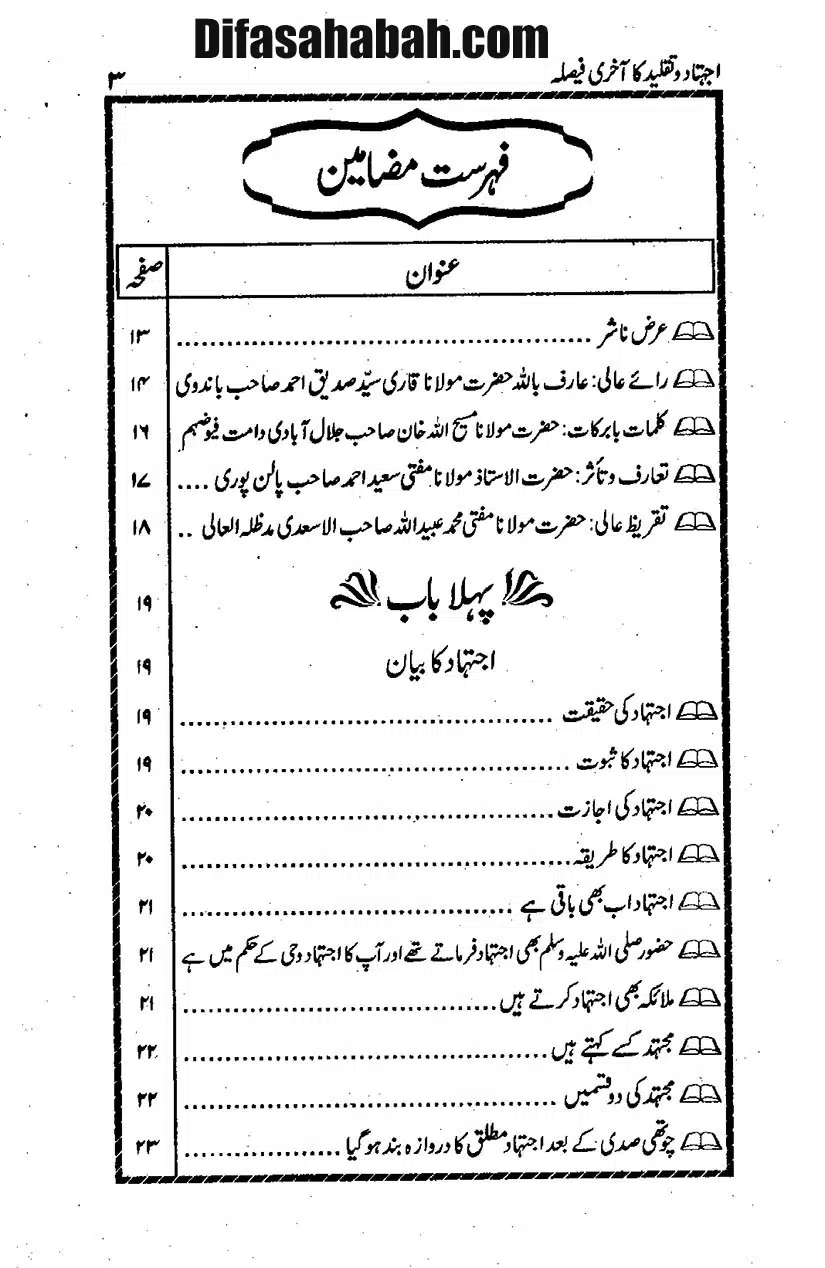 Difasahabah.com
اجتہاد و تقلید کا آخری فیصلہ ۳
فہرست مضامین
عنوان صفحہ
عرض ناشر ................................................ ۱۳
رائے عالی: عارف باللہ حضرت مولانا قاری سیّد صدیق احمد صاحب باندوی ۱۴
کلمات بابرکات: حضرت مولانا مسیح اللہ خان صاحب جلال آبادی دامت فیوضہم ۱۶
تعارف و تأثر: حضرت الاستاذ مولانا مفتی سعید احمد صاحب پالن پوری .... ۱۷
تقریظ عالی: حضرت مولانا مفتی محمد عبید اللہ صاحب الاسعدی مدظلہ العالی .. ۱۸
پہلا باب ۱۹
اجتہاد کا بیان ۱۹
اجتہاد کی حقیقت ........................................... ۱۹
اجتہاد کا ثبوت ............................................. ۱۹
اجتہاد کی اجازت ........................................... ۲۰
اجتہاد کا طریقہ ............................................. ۲۰
اجتہاد اب بھی باقی ہے ...................................... ۲۱
حضور صلی اللہ علیہ وسلم بھی اجتہاد فرماتے تھے اور آپ کا اجتہاد وحی کے حکم میں ہے ۲۱
ملائکہ بھی اجتہاد کرتے ہیں .................................... ۲۱
مجتہد کسے کہتے ہیں .......................................... ۲۲
مجتہد کی دو قسمیں ........................................... ۲۲
چوتھی صدی کے بعد اجتہاد مطلق کا دروازہ بند ہو گیا .................. ۲۳